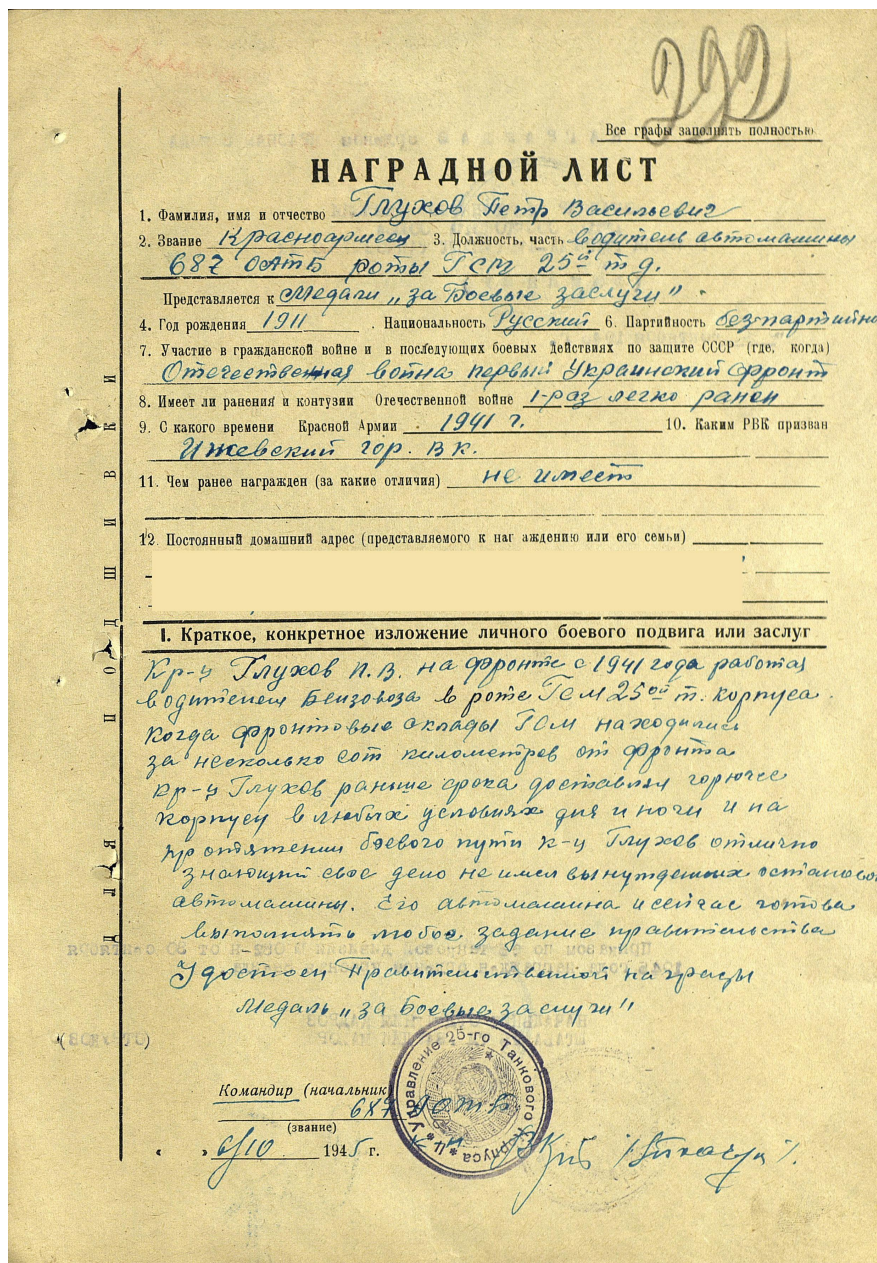 292
Все графы заполнять полностью
НАГРАДНОЙ ЛИСТ
1. Фамилия, имя и отчество Глухов Петр Васильевич
2. Звание Красноармеец 3. Должность, часть водитель автомашины
687 ОАТБ роты ГСМ 25й т д.
Представляется к Медали „за Боевые заслуги"
4. Год рождения 1911 . Национальность Русский 6. Партийность безпартийн
7. Участие в гражданской войне и в последующих боевых действиях по защите СССР (где, когда)
Отечественная война первый Украинский фронт
8. Имеет ли ранения и контузии Отечественной войне 1-раз легко ранен
9. С какого времени Красной Армии 1941 г. 10. Каким РВК призван
Ижевский гор. ВК.
11. Чем ранее награжден (за какие отличия) не имеет
12. Постоянный домашний адрес (представляемого к наг аждению или его семьи)
I. Краткое, конкретное изложение личного боевого подвига или заслуг
Кр-ц Глухов П.В. на фронте с 1941 года работая
водителем Бензовоза в роте ГСМ 25ой т. корпуса
Когда фронтовые склады ГСМ находились
за несколько сот километров от фронта
кр-ц Глухов раньше срока доставлял горючее
корпусу в любых условиях дня и ночи и на
протяжении боевого пути к-ц Глухов отлично
знающий свое дело не имел вынужденных останово
автомашины. Его автомашина и сейчас готова
выполнять любое задание правительства
Удостоен Правительственной награды
Медаль „за Боевые заслуги"
Командир (начальник
687 ОАТБ
(звание)
« » 6/10 1945 г.
Управление 25-го Танкового Корпуса
ДЛЯ ПОДШИВКИ